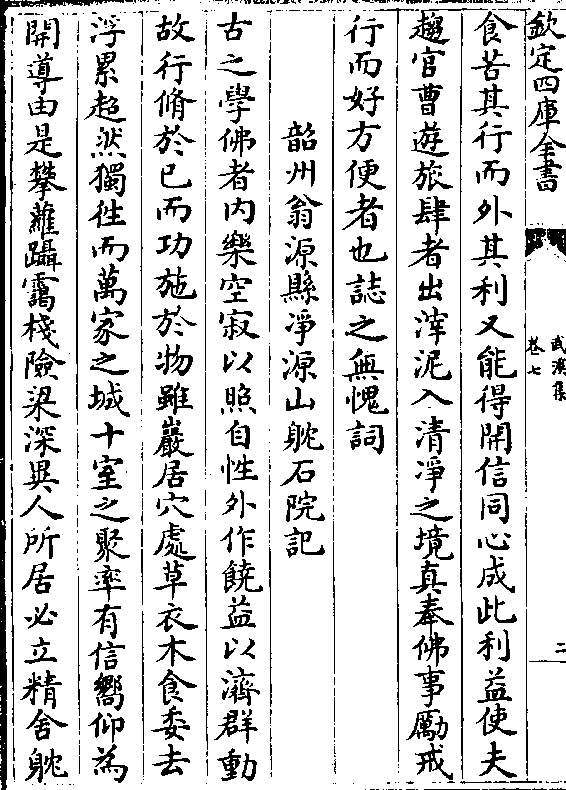 欽定四庫全書
武溪集
卷七
二
食苦其行而外其利又能得開信同心成此利益使夫
趨官曹遊旅肆者出滓泥入清凈之境真奉佛事勵戒
行而好方便者也誌之無愧詞
韶州翁源縣凈源山躭石院記
古之學佛者内樂空寂以照自性外作饒益以濟群動
故行脩於已而功施於物雖巖居穴處草衣木食委去
浮累超然獨徃而萬家之城十室之聚率有信嚮仰為
開導由是攀蘿躡靄棧險梁深異人所居必立精舍躭